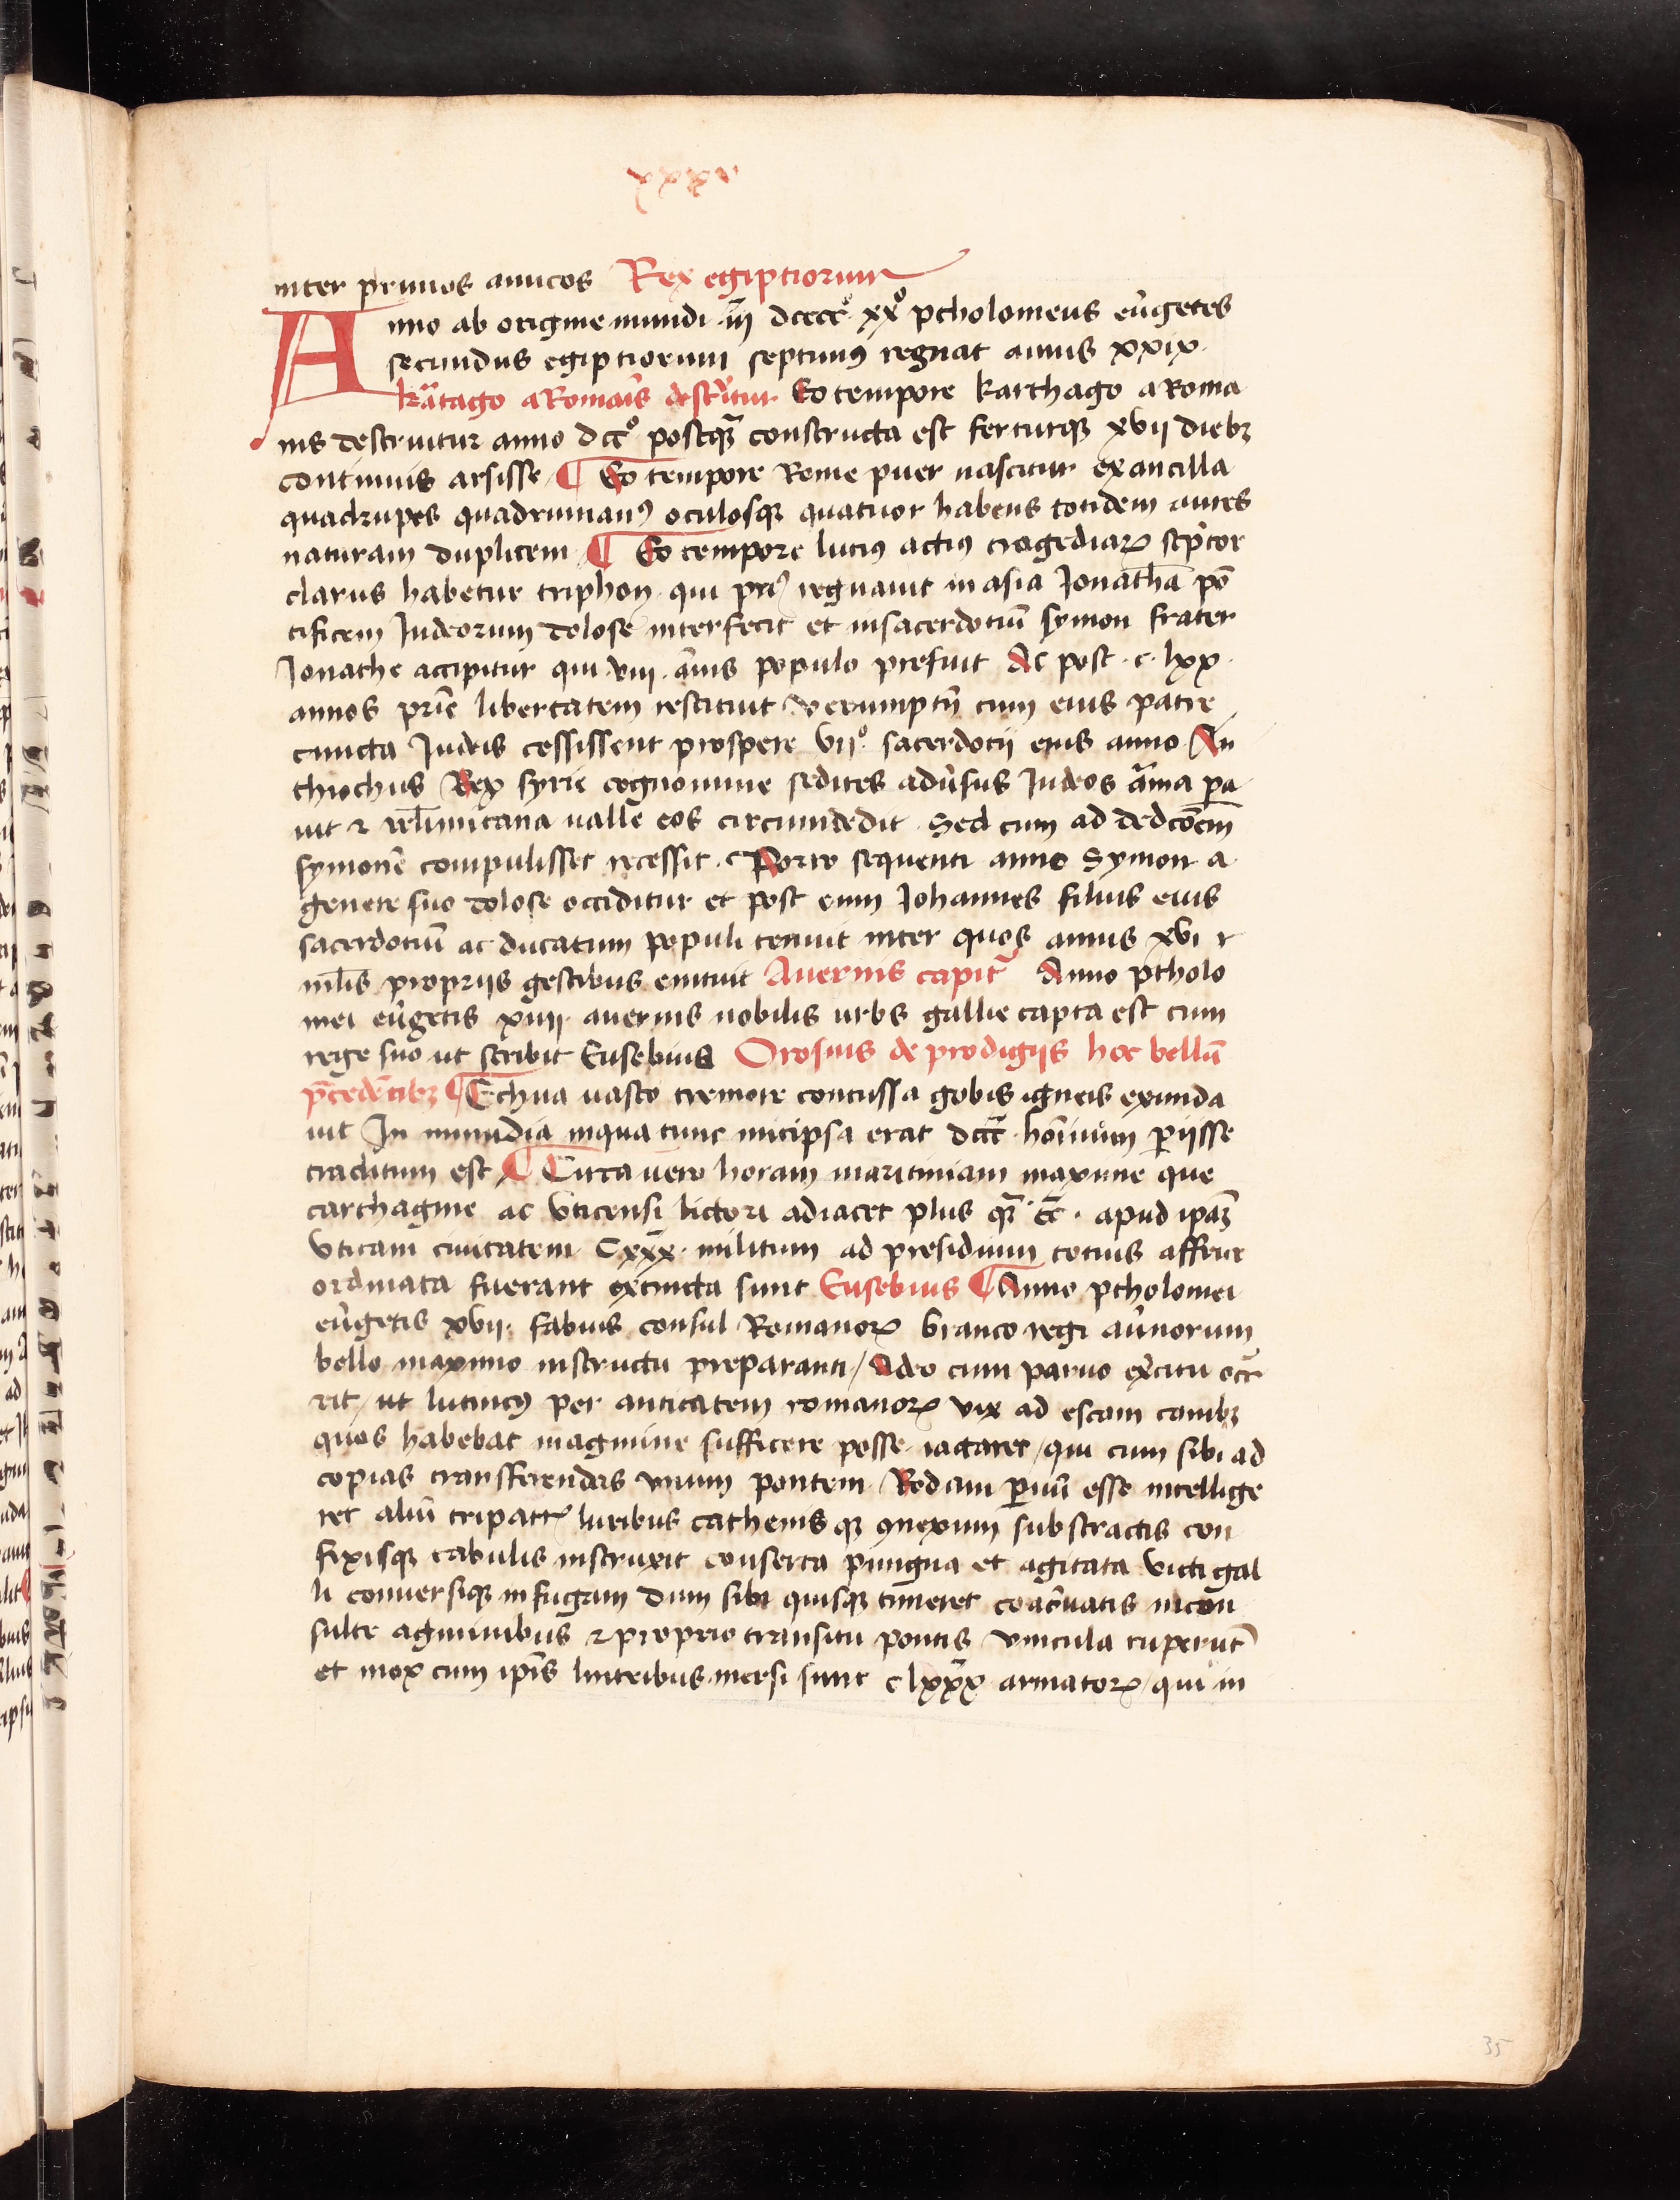 xxxv
inter primos amicos Rex egiptiorum
Anno ab origine mundi iiī dcccc° xx° ptholomeus eůgetes
secundus egiptiorum septimꝰ regnat annis xxix
kr̄atago a Romaīs destr̄uitur Eo tempore karthago a Roma
nis destruitur anno dcc° postqꝫ constructa est ferturqꝫ xvii diebꝫ
continuis arsisse ¶ Eo tempore Rome puer nascitur ex ancilla
quadrupes quadrumanꝰ oculosqꝫ quatuor habens totidem aures
naturam duplicem ¶ Eo tempore luciꝰ actiꝰ tragediaꝝ sc̄ptor
clarus habetur triphon qui prꝰ regnauit in asia Jonathā pō
tificem Judeorum dolose interfecit et in sacerdotiū symon frater
Jonathe accipitur qui viii ānis populo prefuit Ac post c lxx
annos pr̄ie libertatem restituit verumptn̄ cum eius patre
cuncta Judeis cessissent prospere vii° sacerdotii eius anno An
thiochus Rex syrie cognomine sedites adůsus Judeos ārma pa
uit ⁊ irl̄imitana valle eos circumdedit Sed cum ad dedcōem
symonē compulisset recessit Porro sequenti anno Symon a
genere suo dolose occiditur et post eum Johannes filius eius
sacerdotiū ac ducatum populi tenuit inter quos annis xvi ⁊
ml̄is propriis gestibus emicuit Auernis capitr̄ Anno ptholo
mei eůgetis xiiii auernis nobilis urbs gallie capta est cum
rege suo ut scribit Eusebius Orosius de prodigiis hoc bellū
pr̄cedētibꝫ ¶ Ethna vasto tremore concussa gobis igneis exunda
uit In numidia in qua tunc micipsa erat dccc̄ hoīinum periisse
traditum est ¶ Circa vero horam maritimam maxime que
carthagine ac Uticensi littori adiacet plus qꝫ cc̄ apud ipaꝫ
Uticam ciuitatem Cxxx̄ militum ad presidium totius affrice
ordinata fuerant extincta sunt Eusebius ¶ Anno ptholomei
eůgetis xvii fabius consul Romanoꝝ branco regi aůnorum
bello maximo instructu preparanti / adeo cum paruo exc̄itu occr̄
rit / ut lutincꝰ per anticatem romanoꝝ vix ad escam canibꝫ
quos habebat in agmine sufficere posse iactaret / qui cum sibi ad
copias transferendas unum pontem Rodani paruū esse intellige
ret aliū tripattꝰ luribus cathenis qꝫ ꝯnexum substractis con
fixisqꝫ tabulis instruxit conserta pungna et agitata victi gal
li conuersiqꝫ in fugam dum sibi quisqꝫ timeret coacr̄uatis incon
sulte agminibus ⁊ proprio transitu pontis vincula ruperūt
et mox cum ip̄is lintribus mersi sunt c lxxx̄ armatoꝝ / qui in
35